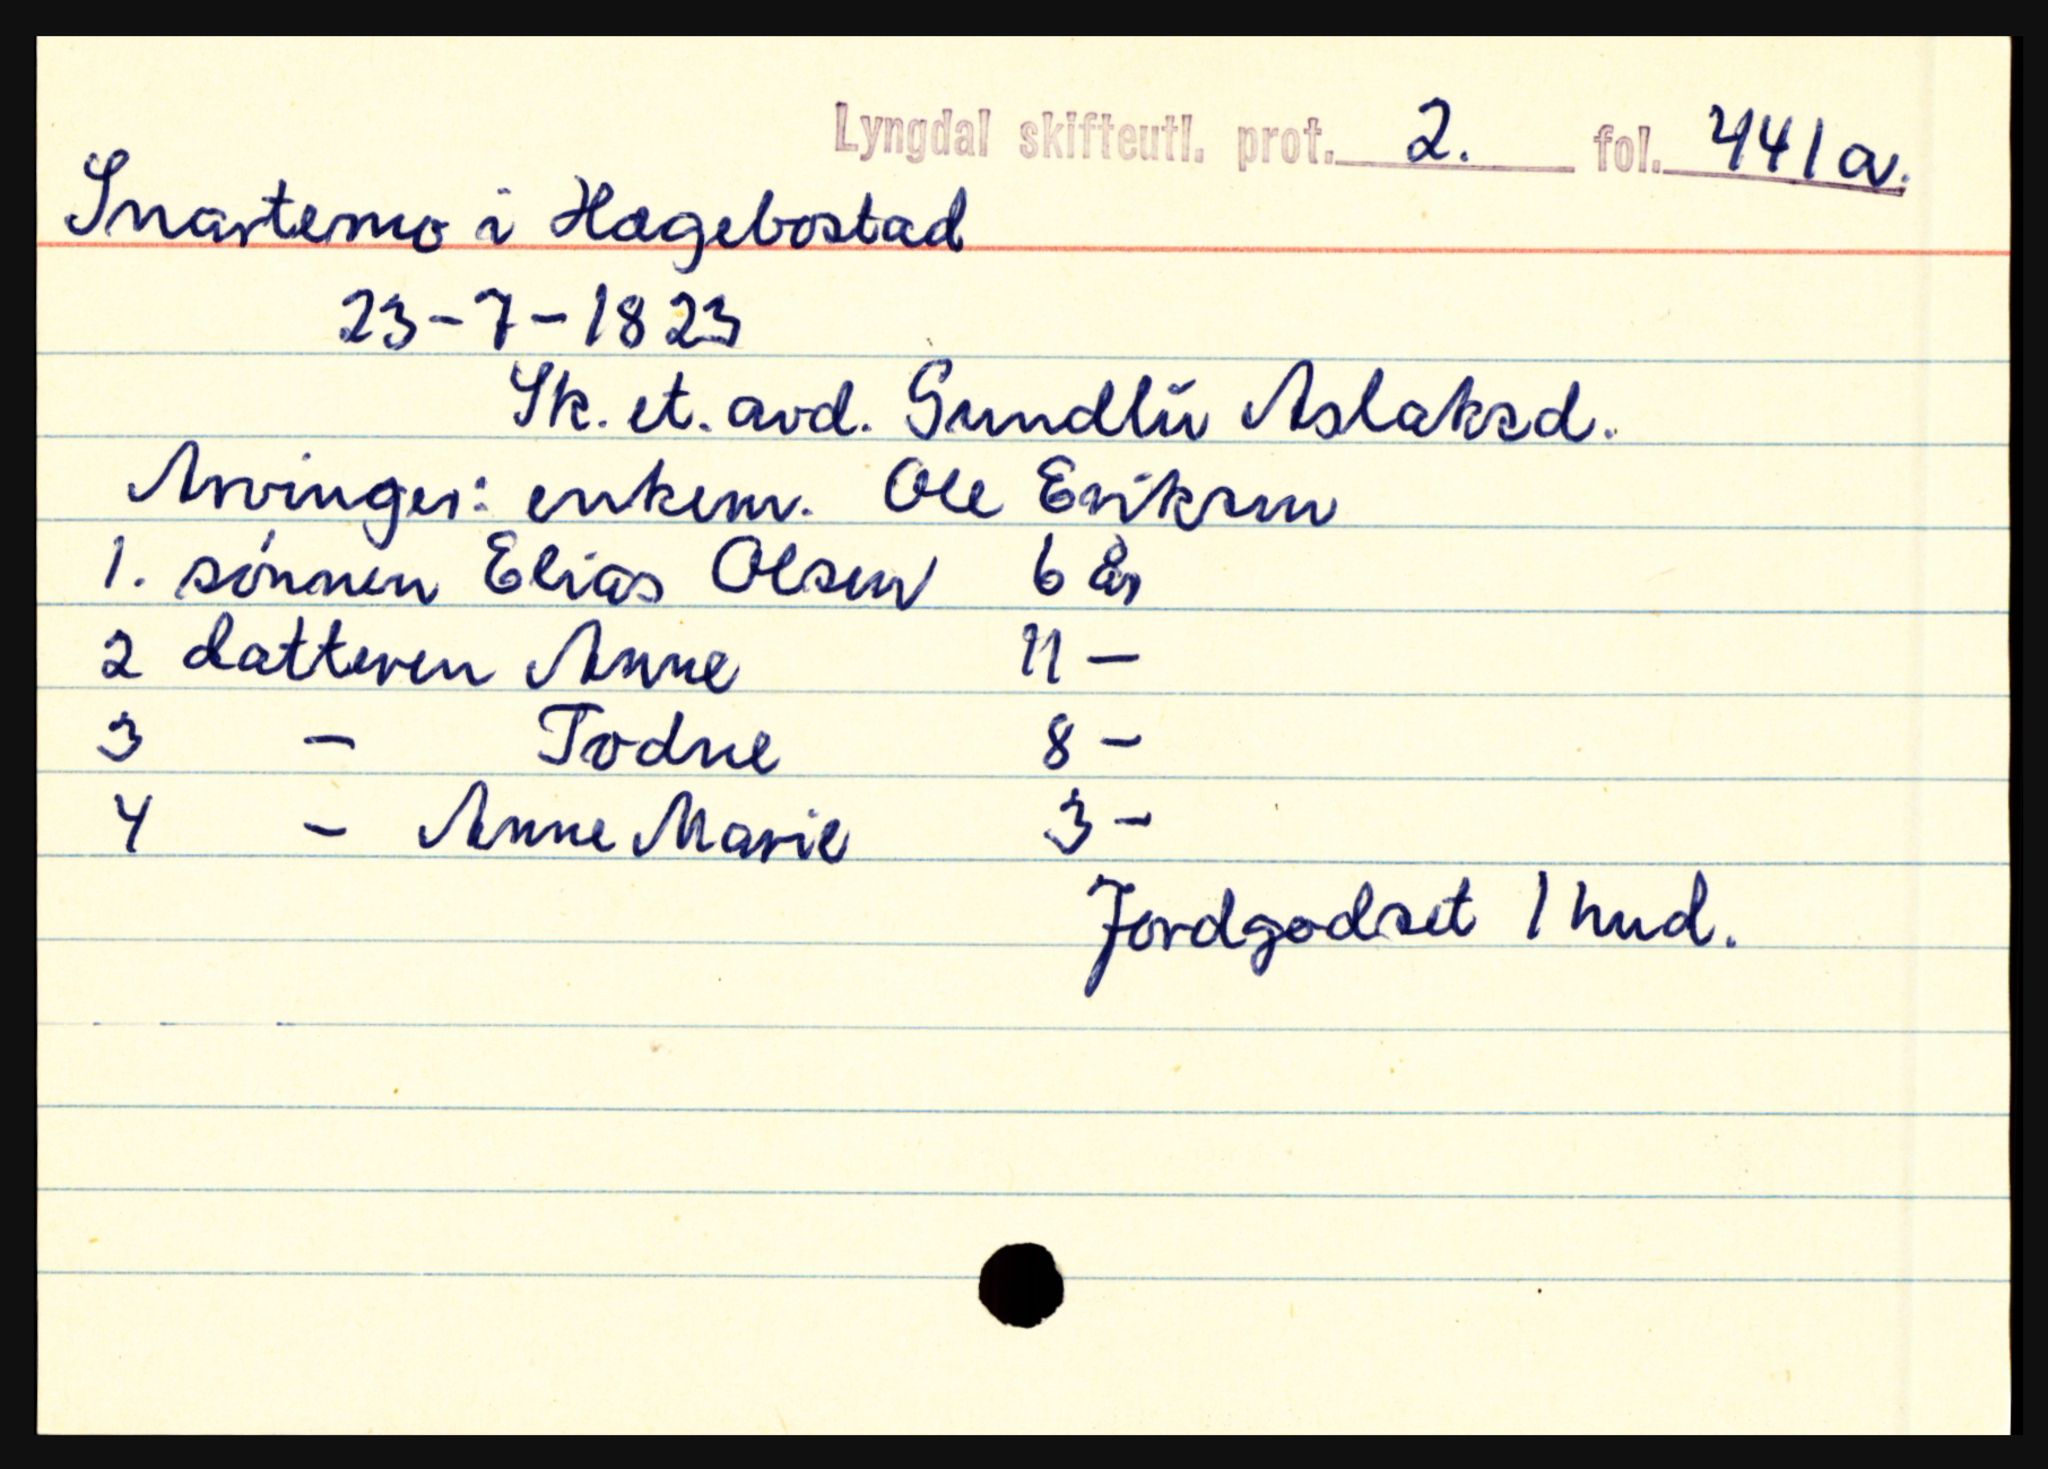 Lyngdal skifteutl. prot. 2. fol. 441a.
Snartemo i Hægebostad
23-7-1823
Sk. et. avd. Gundlii Aslaksd.
Arvinger: enkem. Ole Eriksen
1. sønnen Elias Olsen 6 år
2 datteren Anne 11 -
3 - Todne 8 -
4 - Anne Marie 3 -
Jordgodset 1 hud.